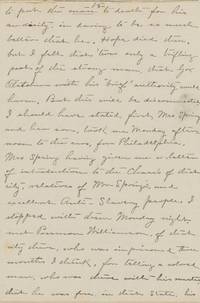 to put this man to death for his
audacity, in daring to be so much
better that he. Hope died then,
but I felt that 'twas only a trifling
part of the strong man, that Gov
with his "brief" authority could
harm. But this will be
I should have stated, first, Mrs Spring
and her son, took me, Monday after
noon to the cars, for Philadelphia,
Mrs Spring having given me a letter
of introduction to the of that
city, relatives of Mrs Spring's, and
excellent Anti Slavery people. I
stopped with them Monday night,
met Passmore Williamson, of that
city there, who was imprisoned three
months I think, for telling a colored
man, who was there with his master
that he was free, in that State, his